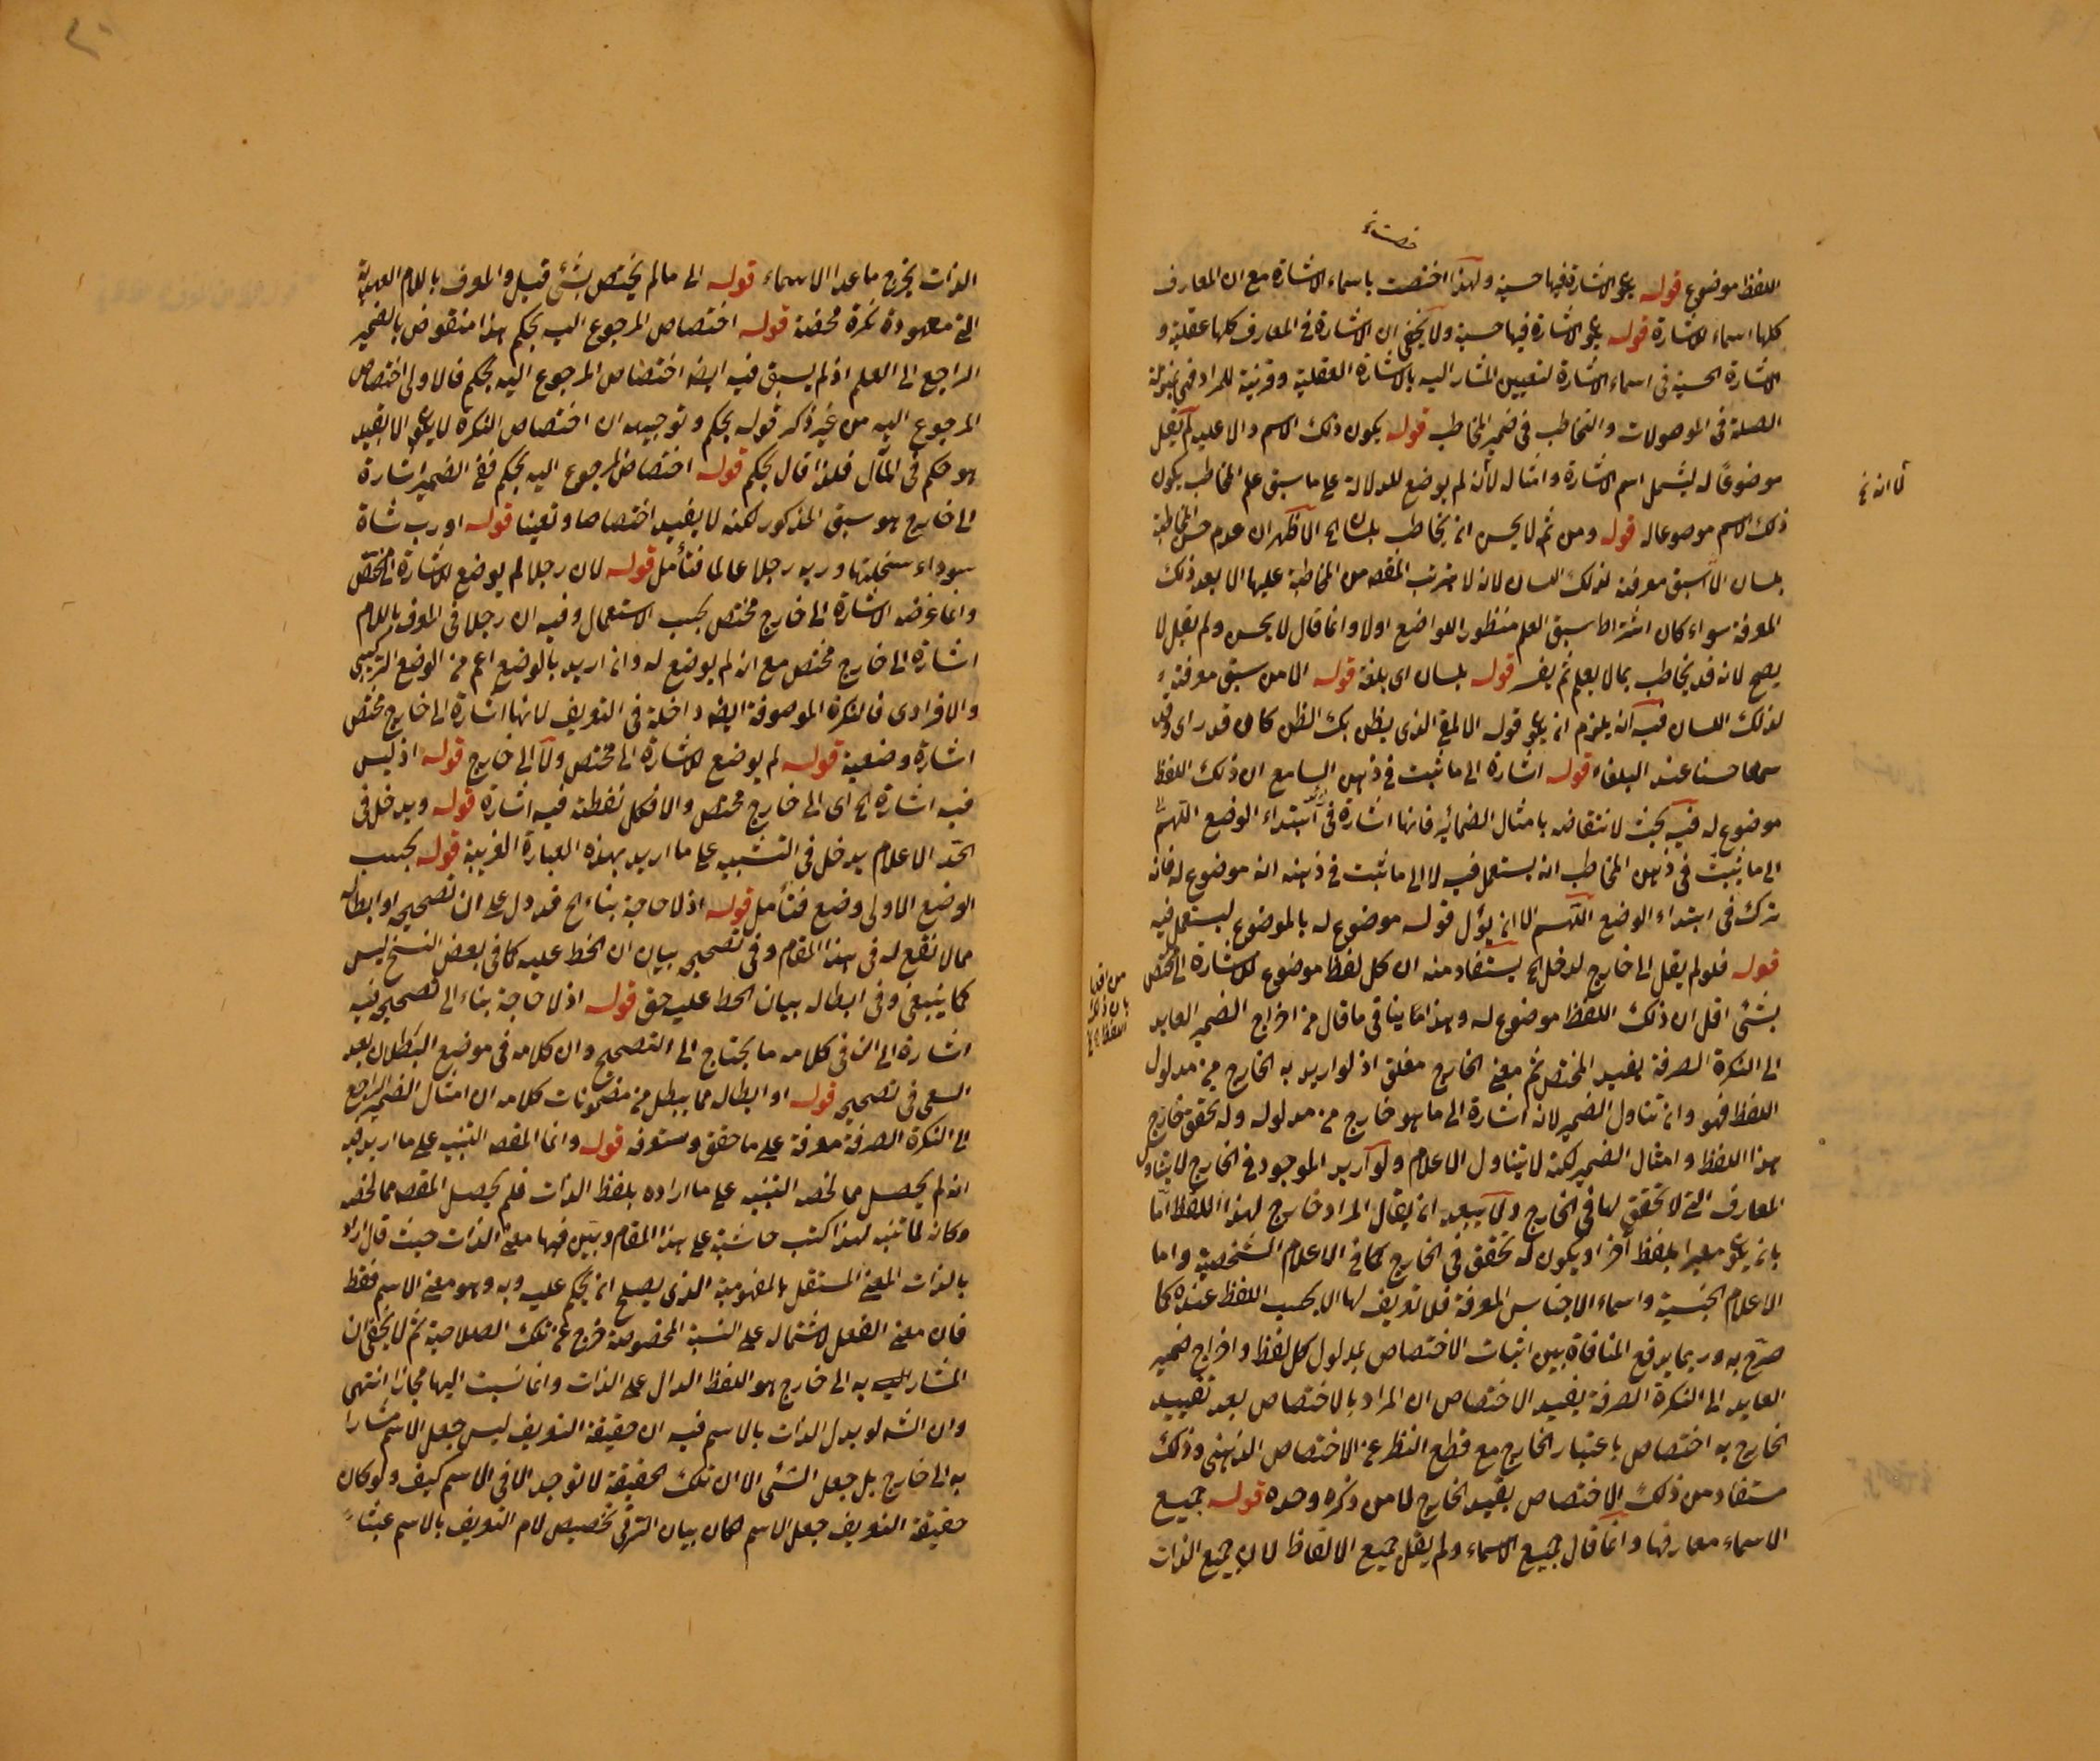 اللفظ موضوع قوله الاشارة فيها حسية ولهذا اختصت باسماء الاشارة مع ان المعارف
كلها اسماء الاشارة قوله الاشارة فيها حسية ولا يخفى ان الاشارة في المعارف كلها عقلية و
الاشارة الحسية في اسماء الاشارة لتعيين المشار اليه بالاشارة العقلية وقرينة للمراد فهي بمنزلة
الصلة في الموصولات والتخاطب في ضمير المخاطب قوله يكون ذلك الاسم دالا عليه لم يقل
موضوعا له ليشمل اسم الاشارة وامثاله لأن لم يوضع للدلالة على ما سبق علم المخاطب يكون
ذلك الاسم موضوعا له قوله ومن ثم لا يحسن ان يخاطب بلسان الخ الاظهر ان عدم حسن المخاطبة
بلسان الا سبق معرفة لذلك اللسان لانه لا يترتب المقصد من المخاطبة عليها الا بعد ذلك
المعرفة سواء كان اشتراط سبق العلم منظور الواضع اولا وانما قال لا يحسن ولم يقل لا
يصح لانه قد يخاطب بما لا يعلم ثم يفسر قوله بلسان اى بلغة قوله الا من سبق معرفته
لذلك اللسان فيه انه يلزم ان قوله الالمعي الذي يظن بك الظن كان قد راى وقد
سمعا حسنا عند البلغاء قوله اشارة الى ما ثبت في ذهن السامع ان ذلك اللفظ
موضوع له فيه بحث لانتقاضه بامثال الضمائر فانها اشارة في ابتداء الوضع
الى ما ثبت في ذهن المخاطب انه يستعمل فيه لا الى ما ثبت في ذهنه انه موضوع له فانه
ترك في ابتداء الوضع اللهم الا ان يؤل قوله موضوع له بالموضوع ليستعمل فيه
قوله فلو لم يقل الى خارج لدخل الخ يستفاد منه ان كل لفظ موضوع للاشارة الى مختص
بشئ اقل ان ذلك اللفظ موضوع له وهذا ينافي ما قال من اخراج الضمير العايد
الى النكرة الصرفة بقيد المختص ثم معنى الخارج مغلق اذ لو اريد به الخارج من مدلول
اللفظ فهو وان تناول الضمير لانه اشارة الى ما هو خارج من مدلوله وله تحقق خارج
هذا اللفظ وامثال الضمير لكنه لا يتناول الاعلام ولو اريد الموجود في الخارج لا يتناول
المعارف التي لا تحقق لها في الخارج ولا يبعد ان يقال المراد خارج لهذا اللفظ اما
بان معبرا بلفظ آخر او يكون له تحقق في الخارج كما في الاعلام الشخصية واما
الاعلام الجنسية واسماء الاجناس المعرفة فلا تعريف لها الا بحسب اللفظ عنده كما
صرح به وربما يدفع المنافاة بين اثبات الاختصاص بمدلول كل لفظ واخراج ضمير
العايد الى النكرة الصرفة بقيد الاختصاص ان المراد بالاختصاص بعد تقييد
الخارج به اختصاص باعتبار الخارج مع قطع النظر عن الاختصاص الذهني وذلك
مستفاد من ذلك الاختصاص بقيد الخارج لا من ذكره وحده قوله جميع
الاسماء معارفها وانما قال جميع الاسماء ولم يقل جميع الالفاظ لان جميع الذات
لانه
من اقل
بان ذلك
اللفظ
الذات يخرج ما عدا الاسماء قوله الى ما لم يختص بشئ قبل والمعرف باللام العهدية
التي معهودة نكرة محضة قوله اختصاص المرجوع اليه بحكم هذا منقوض بالضمير
الراجع الى العلم اذ لم يسبق فيه ايضا اختصاص المرجوع اليه بحكم فالاولى اختصاص
المرجوع اليه من غير ذكر قوله بحكم وتوجيهه ان اختصاص النكرة لا الا بقيد
هو حكم في المآل فلذا قال بحكم قوله اختصاص المرجوع اليه بحكم ففي الضمير اشارة
الى خارج هو سبق المذكور لكنه لا يفيد اختصاصا وتعينا قوله او رب شاة
سوداء سخلتها وربه رجلا عالما فتأمل قوله لان رجلا لم يوضع للاشارة الى مختص
وانما عرضه الاشارة الى خارج مختص بحسب الاستعمال وفيه ان رجلا في المعرف باللام
اشارة الى خارج مختص مع انه لم يوضع له وان اريد بالوضع اعم من الوضع التركيبي
والافرادي فالنكرة الموصوفة ايضا داخلة في التعريف لانها اشارة الى خارج مختص
اشارة وضعية قوله لم يوضع للاشارة الى مختص ولا الى خارج قوله اذ ليس
فيه اشارة الخ اى الى خارج مختص والا فكل لفظة فيه اشارة قوله ويدخل في
الحد الاعلام يدخل في التنبيه على ما اريد بهذه العبارة الغريبة قوله بحسب
الوضع الاولى وضع فتأمل قوله اذ لا حاجة بناء الخ قد دل على ان تصحيحه او ابطاله
مما لا نفع له في هذا المقام وفي تصحيحه بيان ان الحط عليه كما في بعض النسخ ليس
كما ينبغي وفي ابطاله بيان الحط عليه حق قوله اذ لا حاجة بناء الى تصحيحه فيه
اشارة الى ان في كلامه ما يحتاج الى التصحيح وان كلامه في موضع البطلان بعد
السعي في تصحيحه قوله او ابطاله مما يبطل من مضمونات كلامه ان امثال الضمير الراجع
الى النكرة الصرفة معرفة على ما حقق وستعرفه قوله وانما المقصد التنبيه على ما اريد فيه
انه لم يحصل مما لخصه التنبيه على ما اراده بلفظ الذات فلم يحصل المقصد مما لخصه
وكانه لما تنبه لهذا كتب حاشية على هذا المقام وبين فيها معنى الذات حيث قال اراد
بالذات المعنى المستقل بالمفهومية الذي يصلح ان يحكم عليه وبه وهو معنى الاسم فقط
فان معنى الفعل لاشتماله على النسبة المخصوصة خرج عن تلك الصلاحية ثم لا يخفى ان
المشار به الى خارج هو اللفظ الدال على الذات وانما نسبت اليها مجازا انتهى
وان الشه لو بدل الذات بالاسم فيه ان حقيقة التعريف ليس جعل الاسم مشارا
به الى خارج بل جعل الشئ الا ان تلك الحقيقة لا توجد الا في الاسم كيف ولو كان
حقيقة التعريف جعل الاسم لكان بيان الشرقي تخصيص لام التعريف بالاسم عبثا